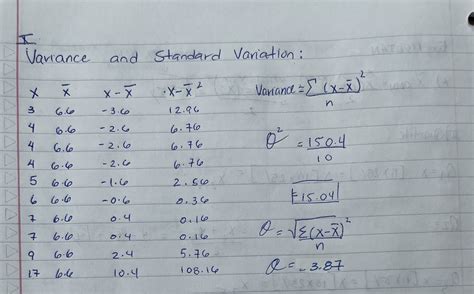 I.
Variance and Standard Variation:
x x̄ x-x̄ x-x̄² Variance = Σ(x-x̄)²/n
3 6.6 -3.6 12.96
4 6.6 -2.6 6.76
4 6.6 -2.6 6.76
4 6.6 -2.6 6.76
5 6.6 -1.6 2.56
6 6.6 -0.6 0.36
7 6.6 0.4 0.16
7 6.6 0.4 0.16
9 6.6 2.4 5.76
17 6.6 10.4 108.16
θ² = 150.4/10
= 15.04
θ = √Σ(x-x̄)²/n
θ = 3.87